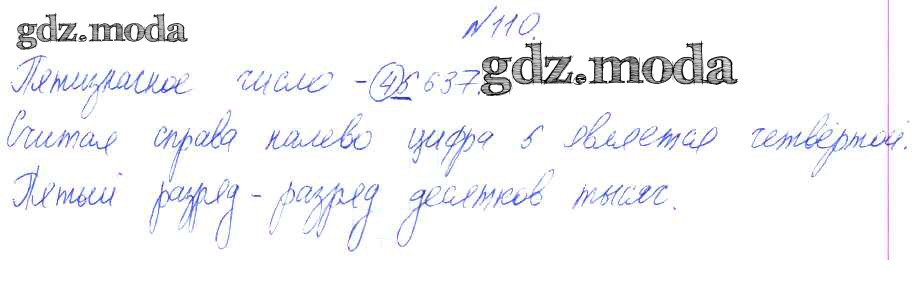 gdz.moda
№110.
Пятизначное число - 45637.
gdz.moda
Считая справа налево цифра 5 является четвёртой.
Пятый разряд - разряд десятков тысяч.